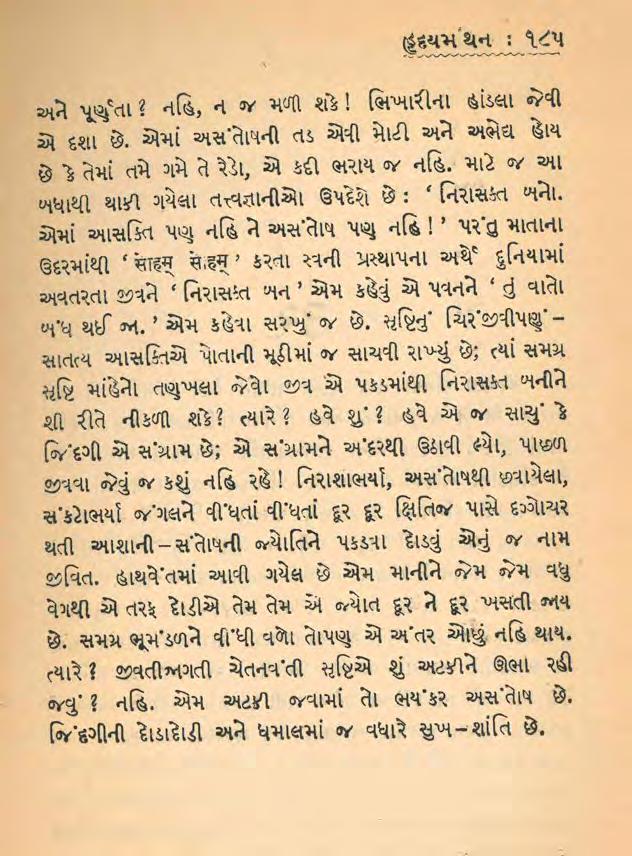 હૃદયમંથન : ૧૮૫
અને પૂર્ણતા? નહિ, ન જ મળી શકે! ભિખારીના હાંડલા જેવી
એ દશા છે. એમાં અસંતોષની તડ એવી મોટી અને અભેદ્ય હોય
છે કે તેમાં તમે ગમે તે રેડો, એ કદી ભરાય જ નહિ. માટે જ આ
બધાથી થાકી ગયેલા તત્ત્વજ્ઞાનીઓ ઉપદેશે છે : ‘નિરાસક્ત બનો.
એમાં આસક્તિ પણ નહિ ને અસંતોષ પણ નહિ!’ પરંતુ માતાના
ઉદરમાંથી ‘સોહમ્ સોહમ્’ કરતા સ્વની પ્રસ્થાપના અર્થે દુનિયામાં
અવતરતા જીવને ‘નિરાસક્ત બન’ એમ કહેવું એ પવનને ‘તું વાતો
બંધ થઈ જા.’ એમ કહેવા સરખું જ છે. સૃષ્ટિનું ચિરંજીવીપણું –
સાતત્ય આસક્તિએ પોતાની મૂઠીમાં જ સાચવી રાખ્યું છે; ત્યાં સમગ્ર
સૃષ્ટિ માંહેનો તણખલા જેવો જીવ એ પકડમાંથી નિરાસક્ત બનીને
શી રીતે નીકળી શકે? ત્યારે? હવે શું? હવે એ જ સાચું કે
જિંદગી એ સંગ્રામ છે; એ સંગ્રામને અંદરથી ઉઠાવી લ્યો, પાછળ
જીવવા જેવું જ કશું નહિ રહે! નિરાશાભર્યા, અસંતોષથી છવાયેલા,
સંકટોભર્યા જંગલને વીંધતાં વીંધતાં દૂર દૂર ક્ષિતિજ પાસે દગ્ગોચર
થતી આશાની – સંતોષની જ્યોતિને પકડવા દોડવું એનું જ નામ
જીવિત. હાથવેંતમાં આવી ગયેલ છે એમ માનીને જેમ જેમ વધુ
વેગથી એ તરફ દોડીએ તેમ તેમ એ જ્યોત દૂર ને દૂર ખસતી જાય
છે. સમગ્ર ભૂમંડળને વીંધી વળો તોપણ એ અંતર ઓછું નહિ થાય.
ત્યારે? જીવતીજાગતી ચેતનવંતી સૃષ્ટિએ શું અટકીને ઊભા રહી
જવું? નહિ. એમ અટકી જવામાં તો ભયંકર અસંતોષ છે.
જિંદગીની દોડાદોડી અને ધમાલમાં જ વધારે સુખ – શાંતિ છે.